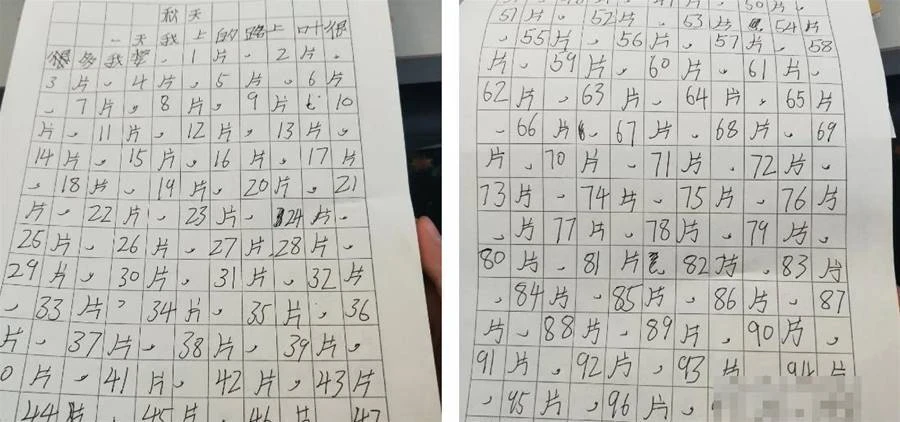 秋天
一天我上的路上叶很
很多我掌、1片、2片、
3片、4片、5片、6片
、7片、8片、9片、10
片、11片、12片、13片、
14片、15片、16片、17片
、18片、19片、20片、21
片、22片、23片、24片、
25片、26片、27片、28片、
29片、30片、31片、32片
、33片、34片、35片、36
片、37片、38片、39片、
0片、41片、42片、43片
44片、45片、46片、47
50片、
51片、52片、53片、54片
、55片、56片、57片、58
片、59片、60片、61片、
62片、63片、64片、65片
、66片、67片、68片、69
片、70片、71片、72片、
73片、74片、75片、76片
、片77片、78片、79片、
80片、81片、82片、83片
、84片、85片、86片、87
片、88片、89片、90片、
91片、92片、93片、94片
、95片、96片、